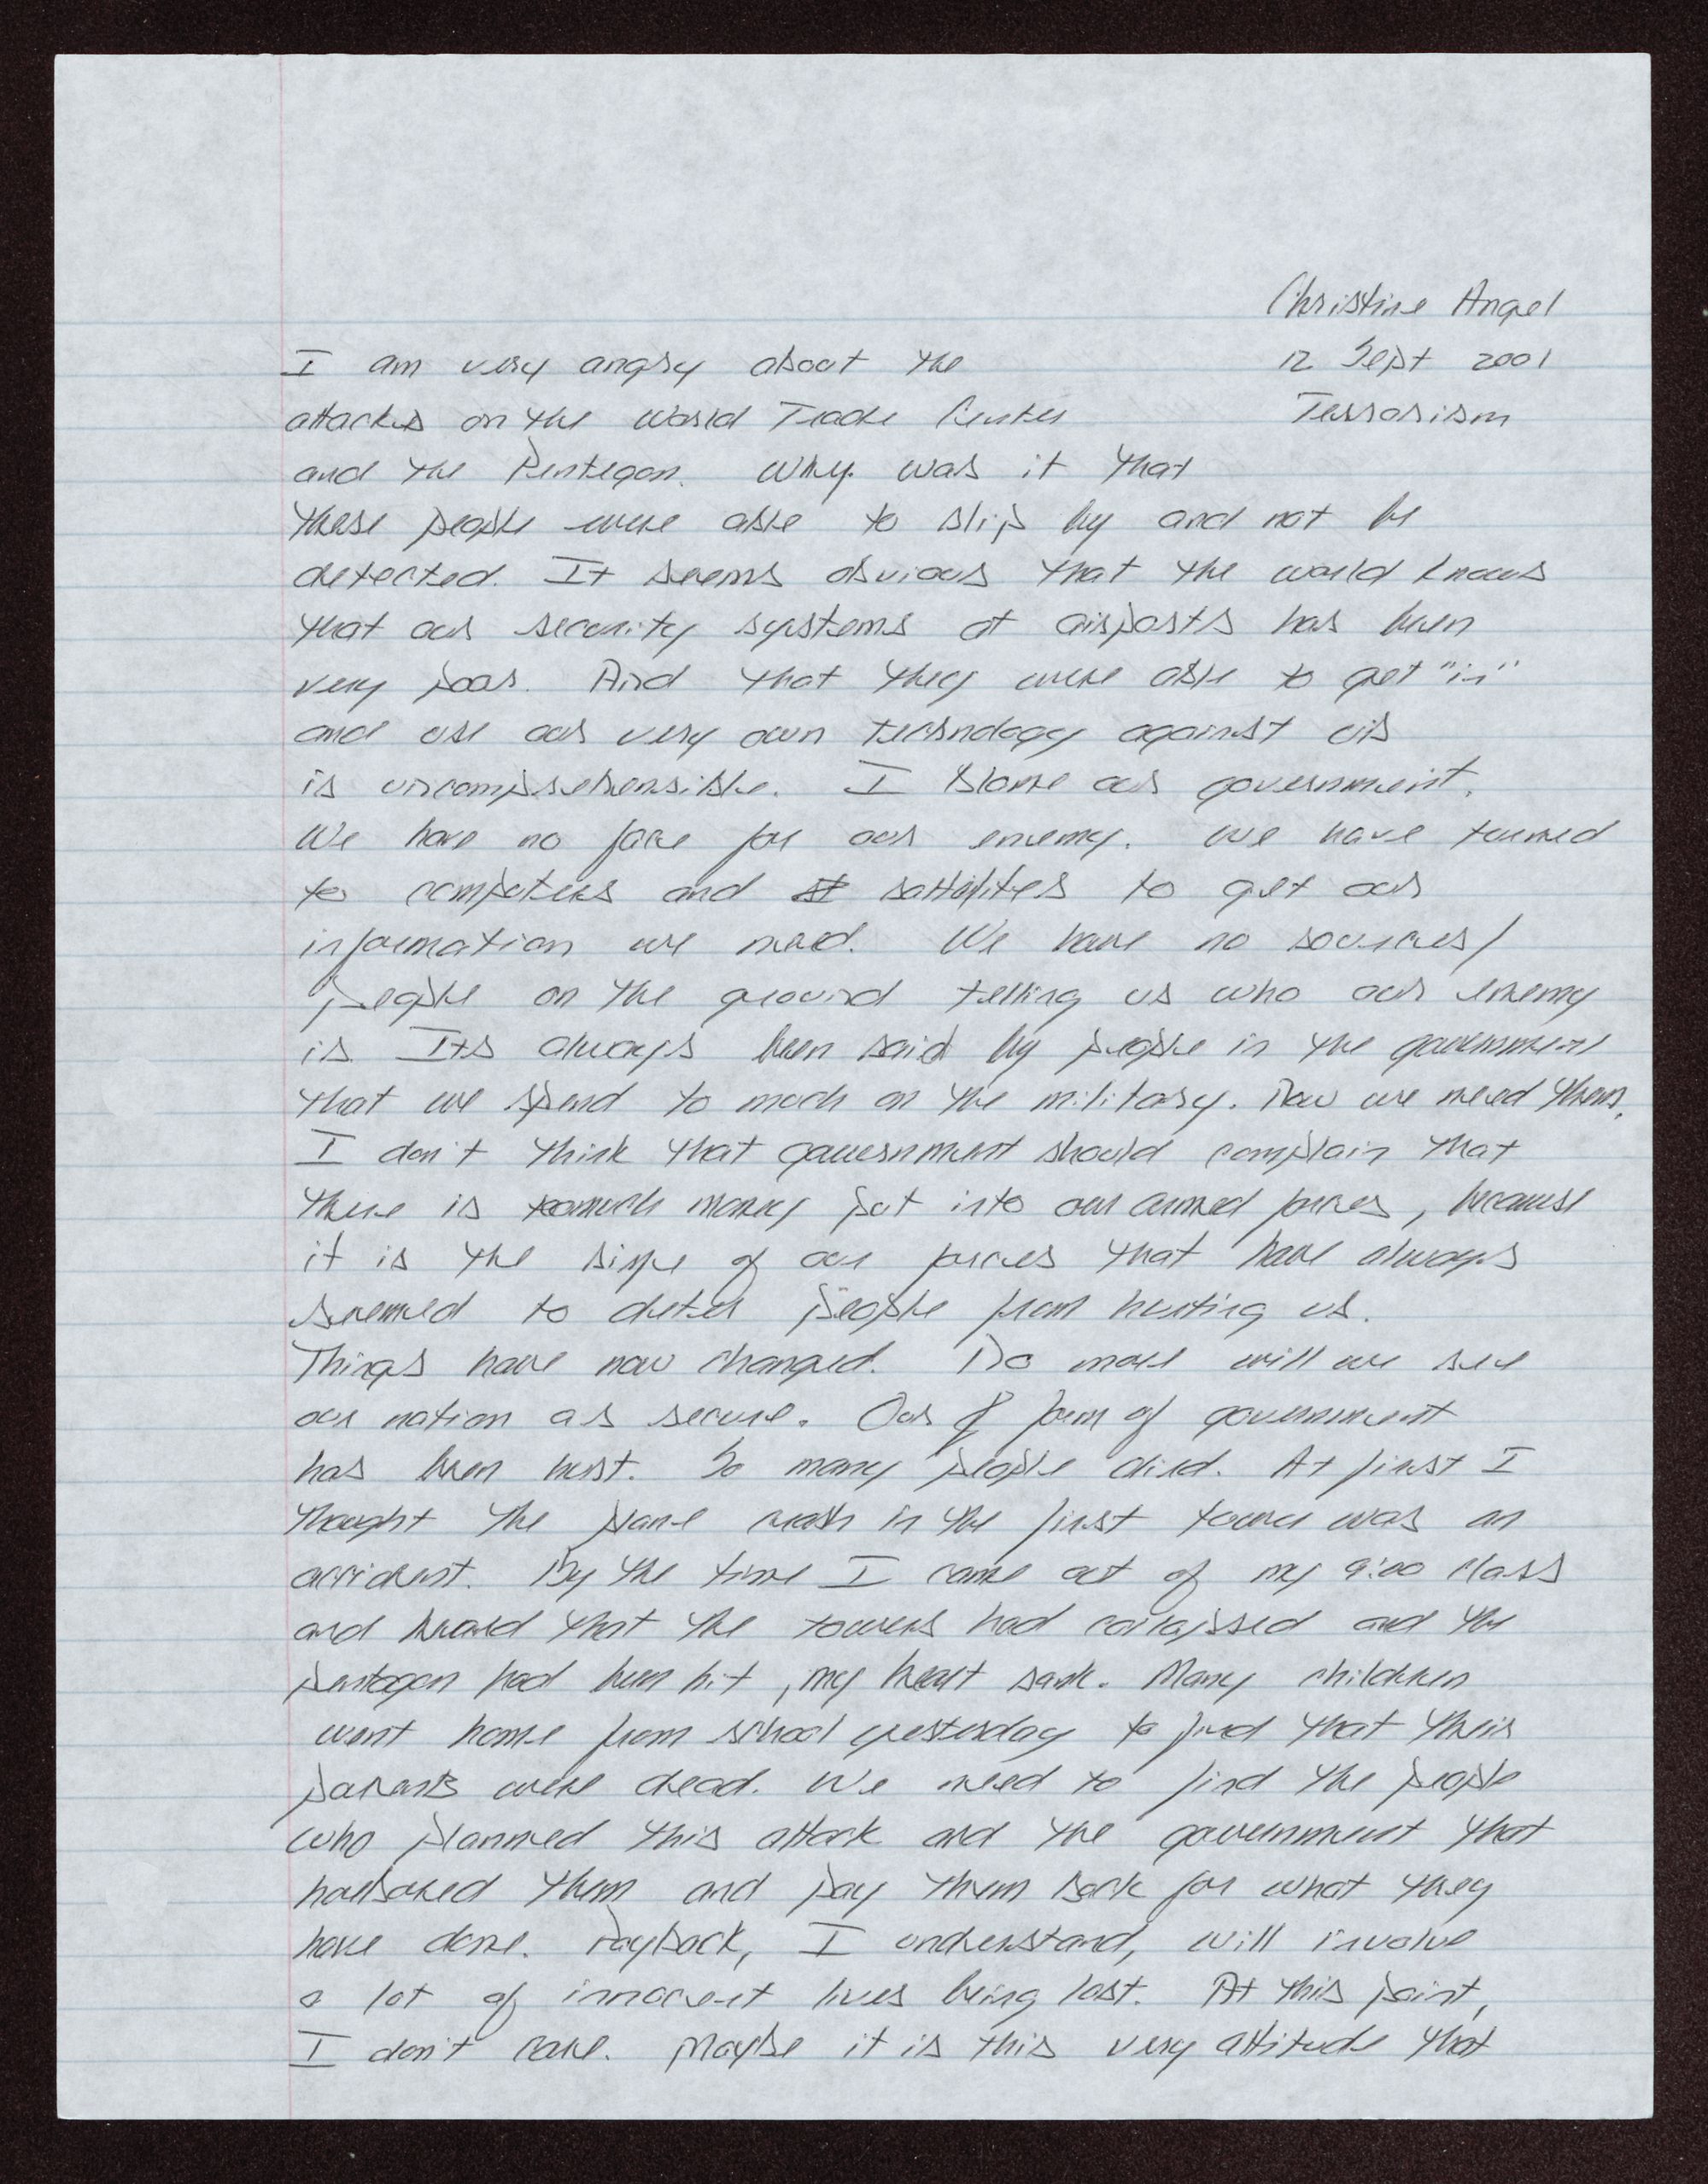 Christine Angel
12 Sept 2001
Terrorism
I am very angry about the
attacks on the World Trade Center
and the Pentegon. Why was it that
these people were able to slip by and not be
detected. It seems obvious that the world knows
that our security systems at airports has been
very poor. And that they were able to get "in"
and use our very own technology against us
is uncomprehensible. I blame our government.
We have no face for our enemy. We have turned
to computers and st sattilites to get our
information we need. We have no sources/
people on the ground telling us who our enemy
is. Its always been said by people in the government
that we spend to much on the military. Now we need them.
I don't think that government should complain that
there is too much money put into our armed forces, because
it is the size of our forces that have always
seemed to deter people from hurting us.
Things have now changed. No more will we see
our nation as secure. Our f form of government
has been hurt. So many people died. At first I
thought the plane crash in the first tower was an
accident. By the time I came out of my 9:00 class
and heard that the towers had collapsed and the
pentagon had been hit, my heart sank. Many children
went home from school yesterday to find that their
parents were dead. We need to find the people
who planned this attack and the government that
harbored them and pay them back for what they
have done. Payback, I understand, will involve
a lot of innocent lives being lost. At this point,
I don't care. Maybe it is this very attitude that